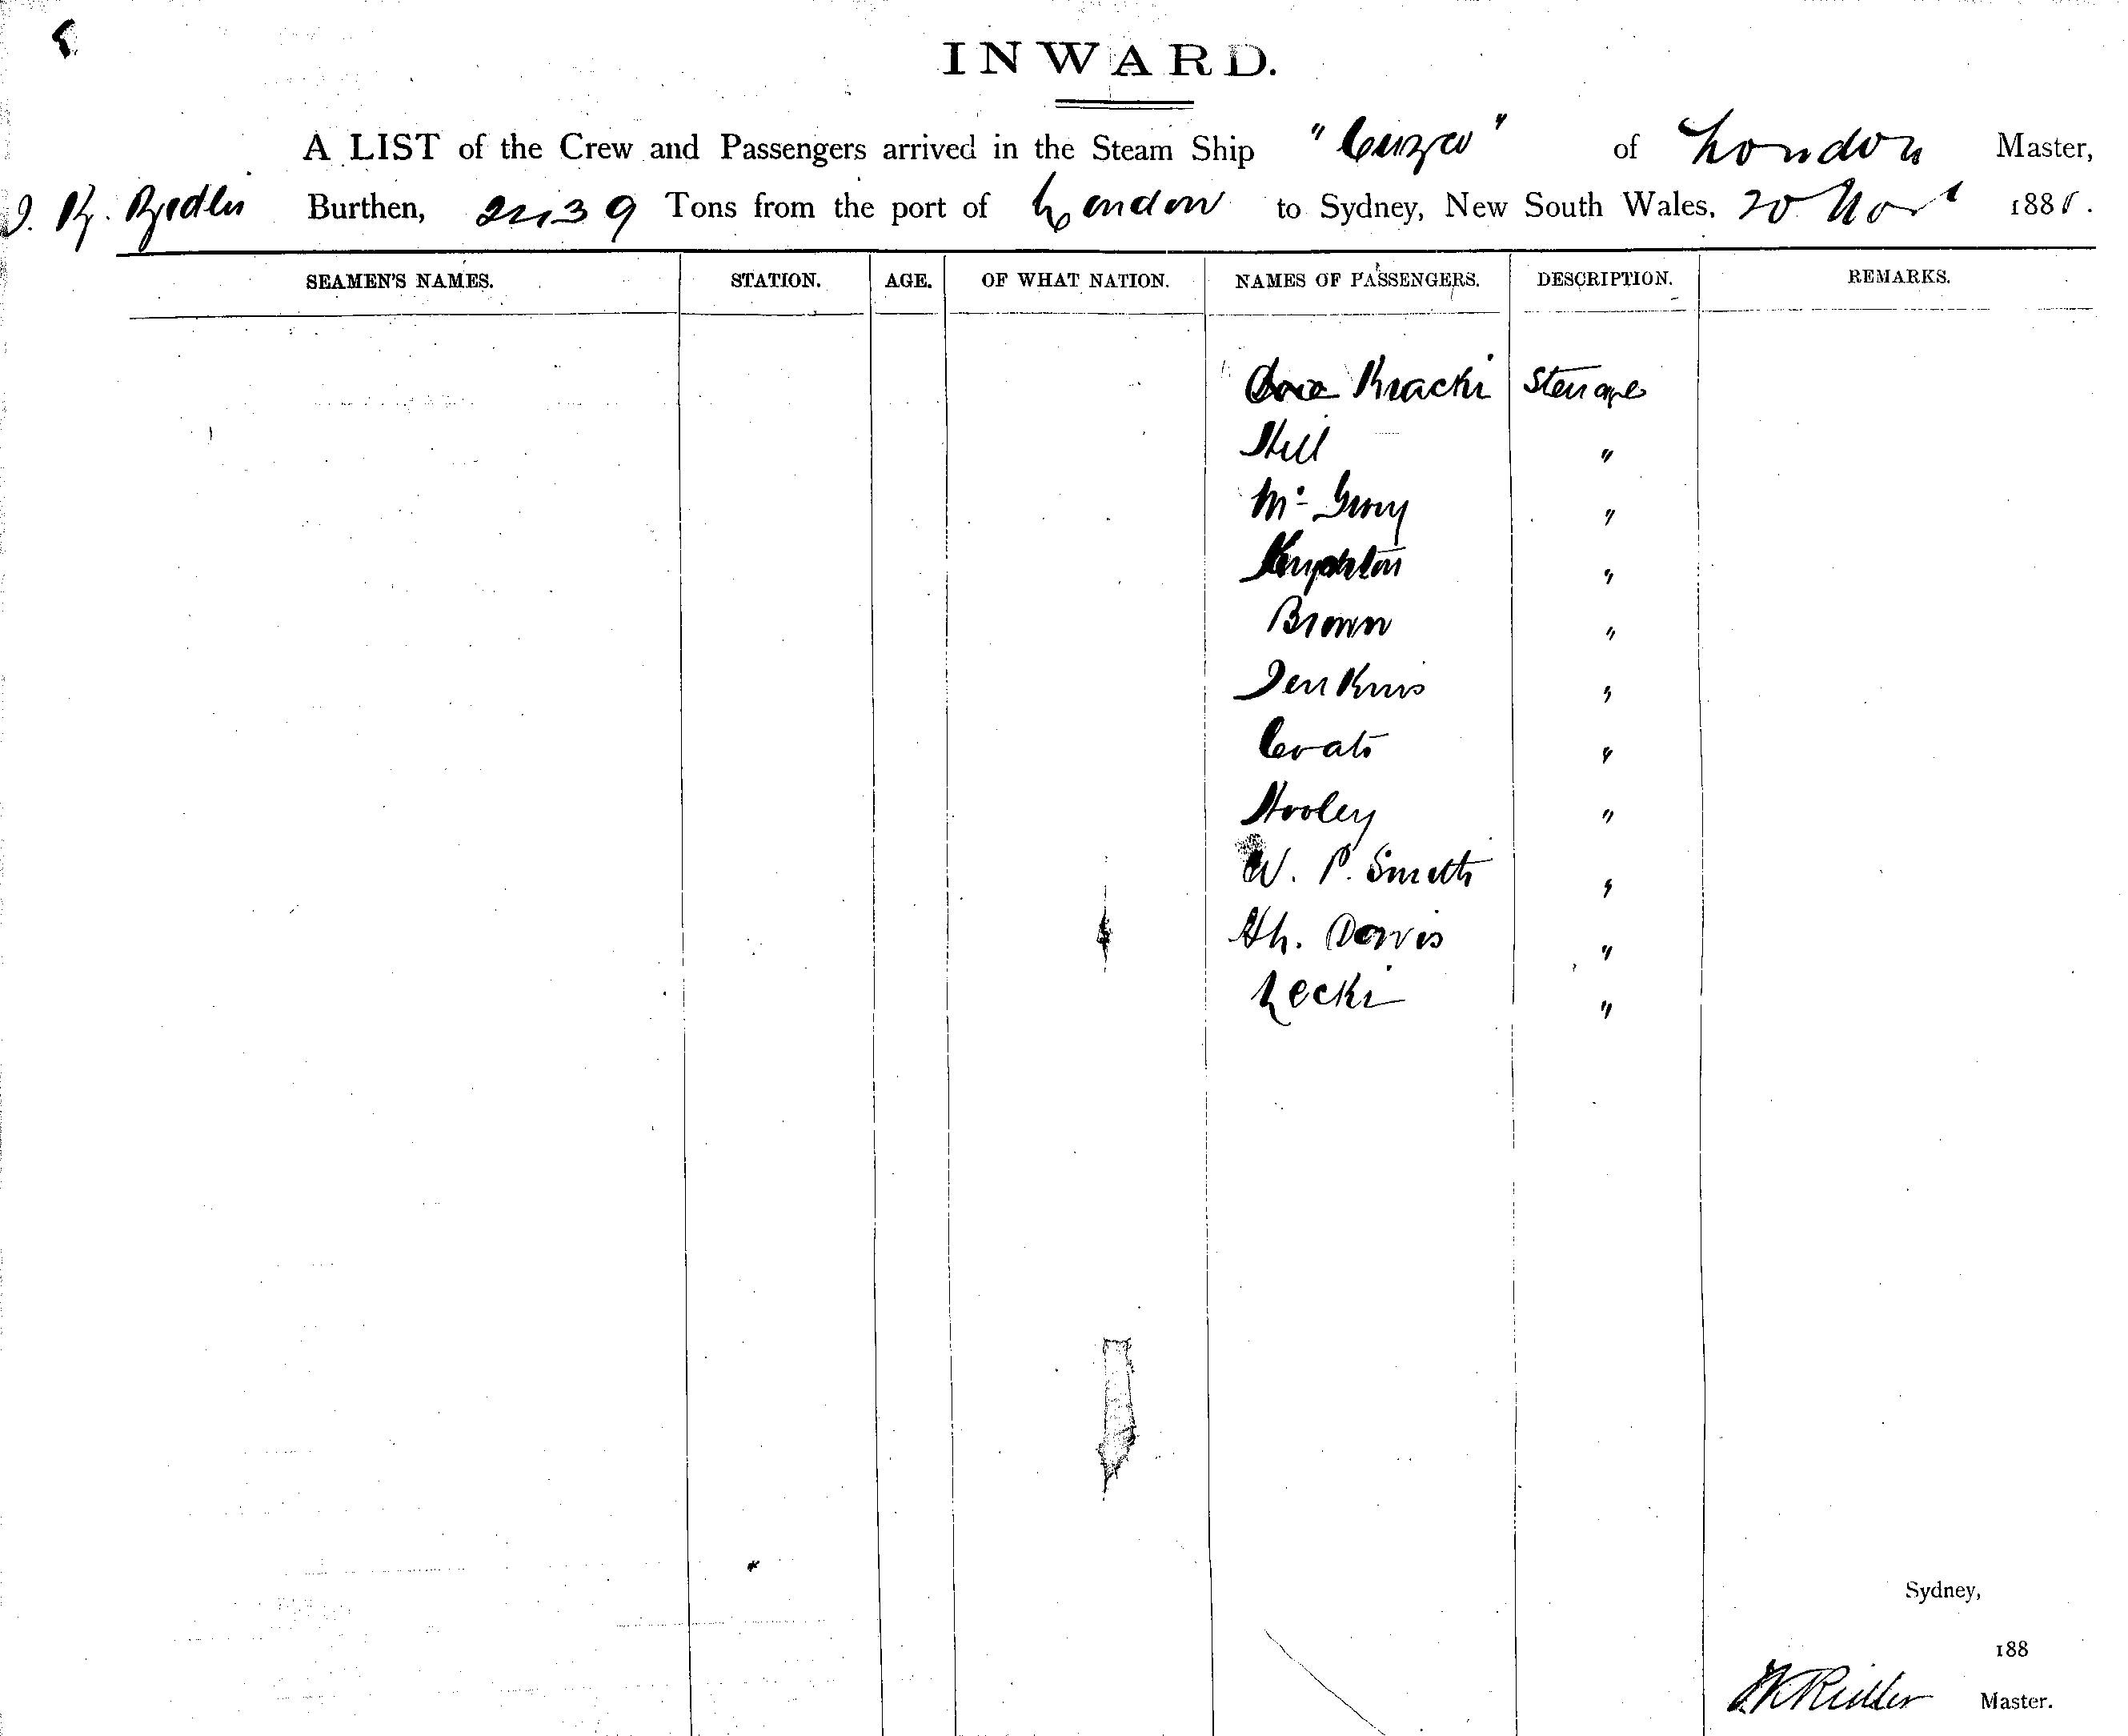 INWARD.
A LIST of the Crew and Passengers arrived in the Steam Ship "Cuzco" of London Master,
J. K. Burthen, 2439 Tons from the port of London to Sydney, New South Wales, 20 Novr 188
SEAMEN'S NAMES. STATION. AGE. OF WHAT NATION. NAMES OF PASSENGERS. DESCRIPTION. REMARKS.
Steerage
Hill "
Mc "
Knighton "
Brown "
Jenkins "
"
Hooley "
W. P. Smith "
Davis "
Lecki "
Sydney,
188
Master.